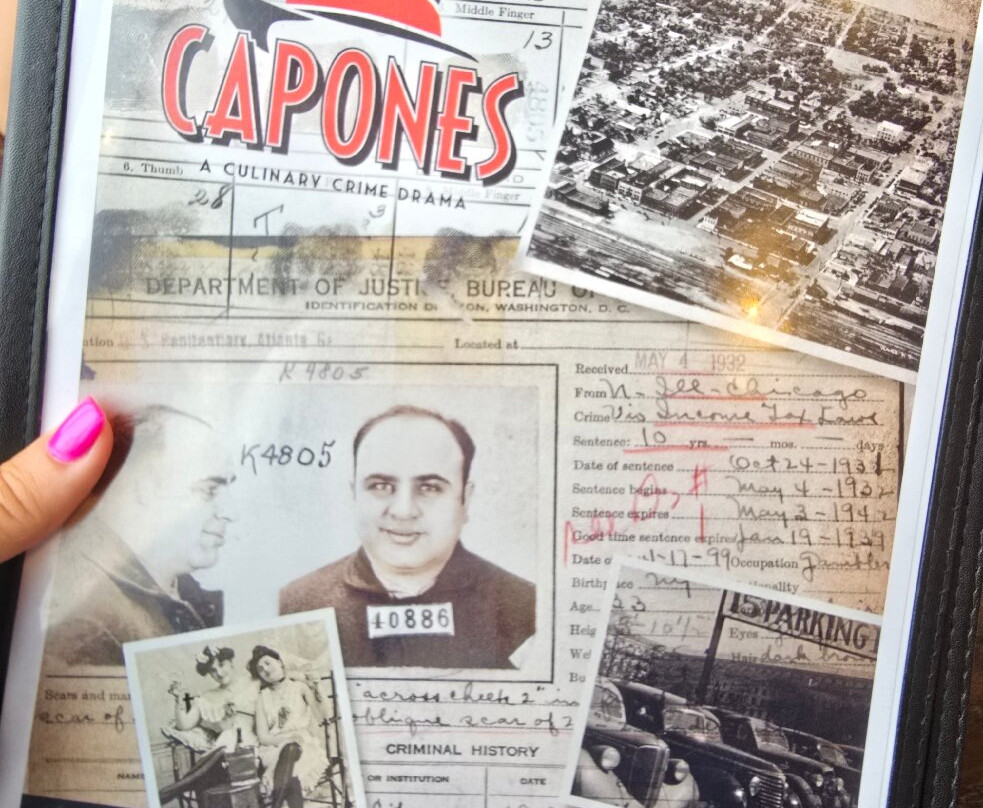 Middle Finger
13
CAPONES
A CULINARY CRIME DRAMA
6. Thumb
Middle Finger
28
DEPARTMENT OF JUSTI BUREAU O
IDENTIFICATION D ON, WASHINGTON, D. C.
Located at
K 4805
Received MAY 4 1932
From N. Ill-Chicago
Crime Vio Income Tax Laws
Sentence: 10 yrs. — mos. — days
Date of sentence Oct 24-1931
Sentence begins May 4-1932
Sentence expires May 3-1942
Good time sentence expires Jan 19-1939
Date o 1-17-99 Occupation Gambler
Birthp ace NY
Age 33
K4805
40886
15 PARKING
Eyes
Hair dark brown
Scars and ma across cheek 2"
scar of oblique scar of 2
CRIMINAL HISTORY
NAM OR INSTITUTION DATE